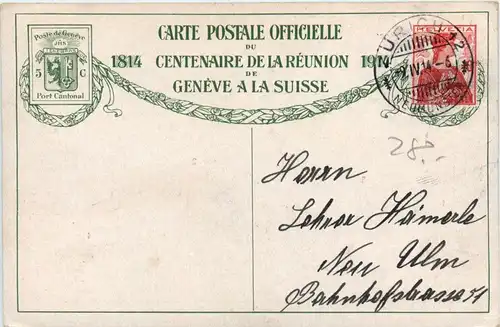 CARTE POSTALE OFFICIELLE
DU
1814 CENTENAIRE DE LA RÉUNION 1914
DE
GENÈVE A LA SUISSE
Poste de Genève
5 C
Port Cantonal
HELVETIA
ZÜRICH 12
28.-
Herrn
Lehrer Hämerle
Neu Ulm
Bahnhofstrasse